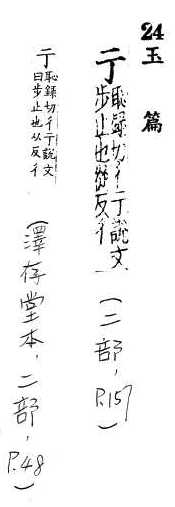 24 玉篇
亍 恥録切彳亍說文
步止也從反彳
(二部, P.157)
亍 恥録切彳亍說文
曰步止也从反彳
(澤存堂本, 二部, P.48)